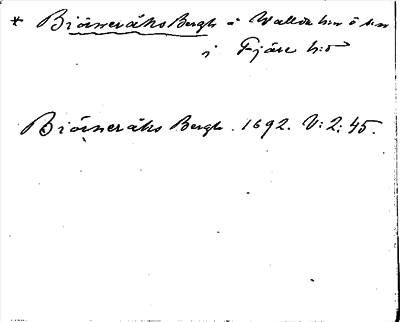 * Biörneråhs Bergh å Wallda hmn ö hmn
i Fjäre h:d
Biörneråhs Bergh. 1692. V: 2: 45.